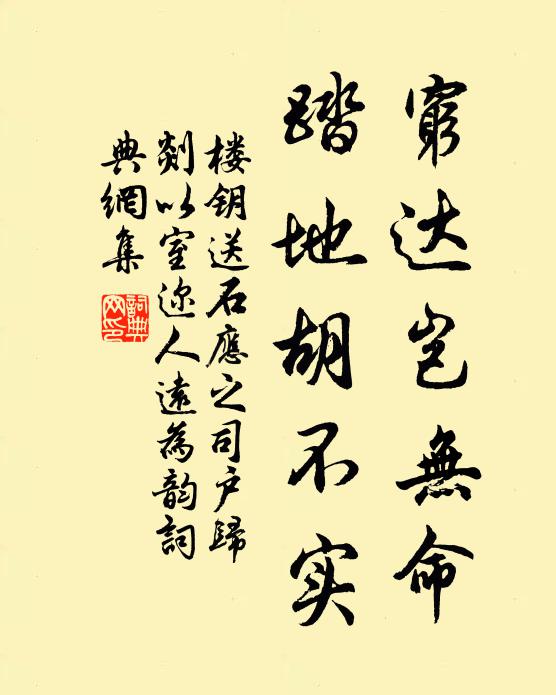 窮达岂無命
踏地胡不实
楼钥送石應之司户歸
剡以室迩人遠為韵詞
典網集
詞典网印